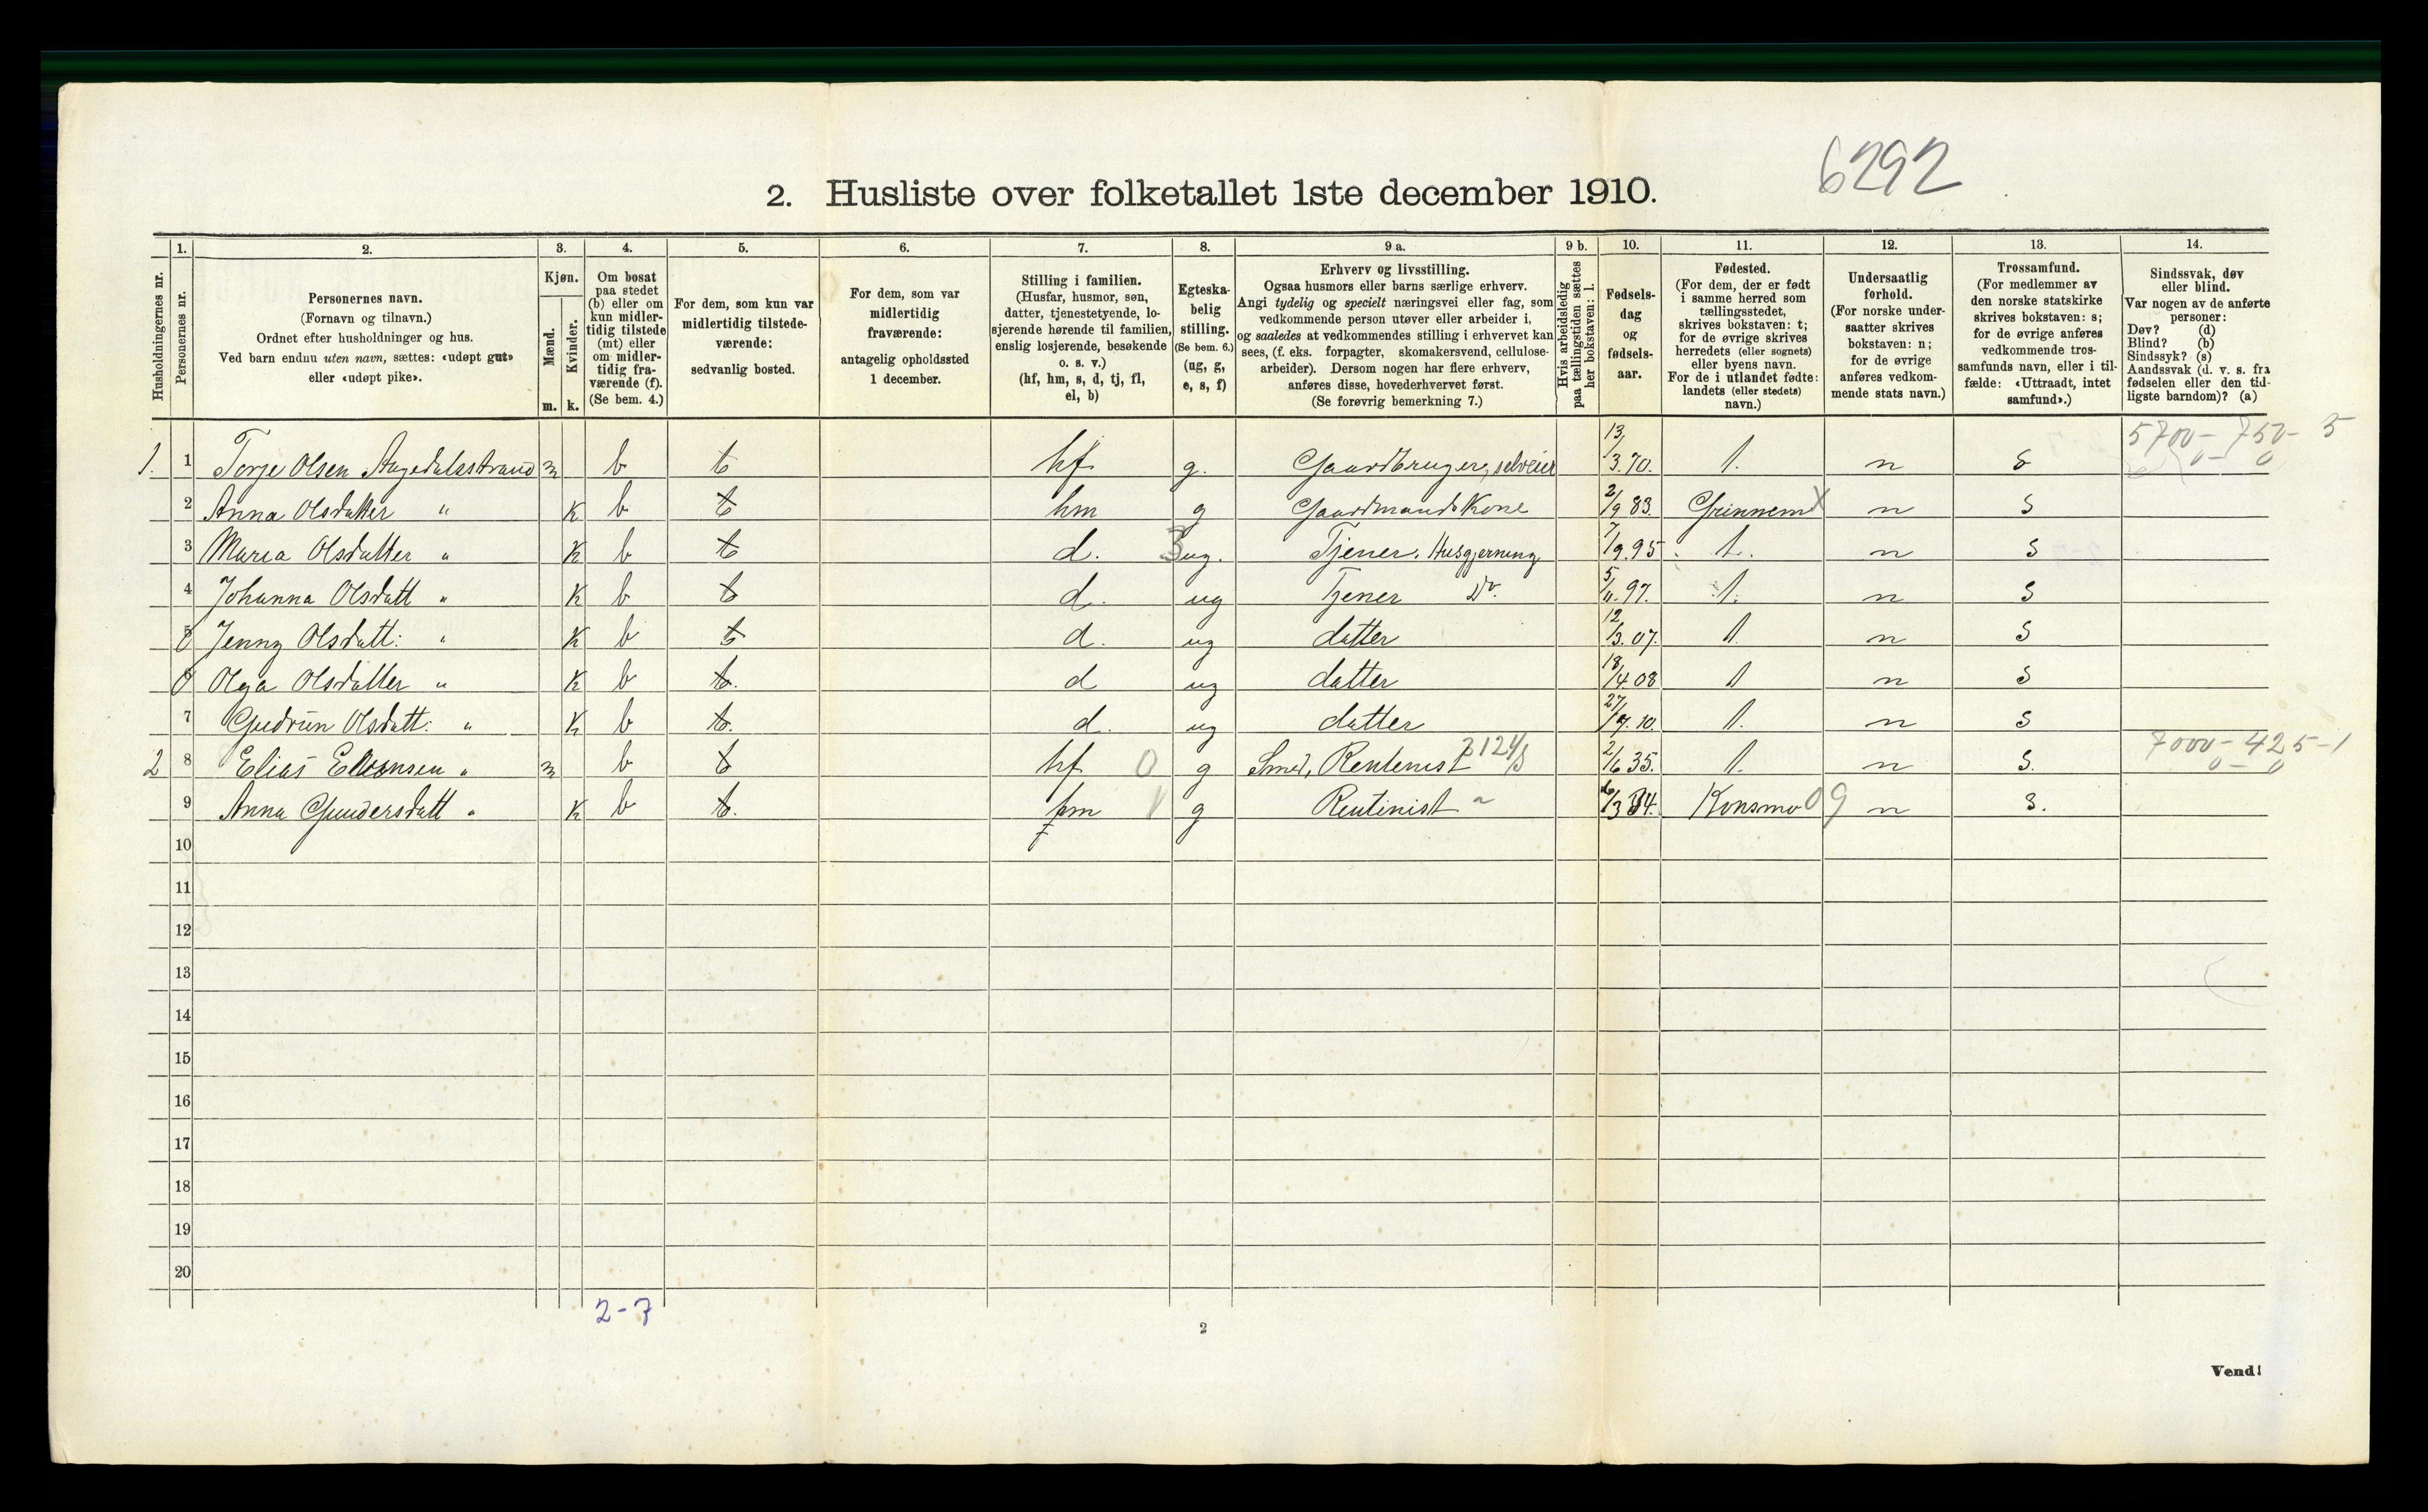 6292
2. Husliste over folketallet 1ste december 1910.
Husholdningernes nr.
1. Personernes nr.
2. Personernes navn.
(Fornavn og tilnavn.)
Ordnet efter husholdninger og hus.
Ved barn endnu uten navn, sættes: «udøpt gut»
eller «udøpt pike».
3. Kjøn.
Mænd. m.
Kvinder. k.
4. Om bosat
paa stedet
(b) eller om
kun midler-
tidig tilstede
(mt) eller
om midler-
tidig fra-
værende (f).
(Se bem. 4.)
5. For dem, som kun var
midlertidig tilstede-
værende:
sedvanlig bosted.
6. For dem, som var
midlertidig
fraværende:
antagelig opholdssted
1 december.
7. Stilling i familien.
(Husfar, husmor, søn,
datter, tjenestetyende, lo-
sjerende hørende til familien,
enslig losjerende, besøkende
o. s. v.)
(hf, hm, s, d, tj, fl,
el, b)
8. Egteska-
belig
stilling.
(Se bem. 6.)
(ug, g,
e, s, f)
9 a. Erhverv og livsstilling.
Ogsaa husmors eller barns særlige erhverv.
Angi tydelig og specielt næringsvei eller fag, som
vedkommende person utøver eller arbeider i,
og saaledes at vedkommendes stilling i erhvervet kan
sees, (f. eks. forpagter, skomakersvend, cellulose-
arbeider). Dersom nogen har flere erhverv,
anføres disse, hovederhvervet først.
(Se forøvrig bemerkning 7.)
9 b. Hvis arbeidsledig
paa tællingstiden sættes
her bokstaven: l.
10. Fødsels-
dag
og
fødsels-
aar.
11. Fødested.
(For dem, der er født
i samme herred som
tællingsstedet,
skrives bokstaven: t;
for de øvrige skrives
herredets (eller sognets)
eller byens navn.
For de i utlandet fødte:
landets (eller stedets)
navn.)
12. Undersaatlig
forhold.
(For norske under-
saatter skrives
bokstaven: n;
for de øvrige
anføres vedkom-
mende stats navn.)
13. Trossamfund.
(For medlemmer av
den norske statskirke
skrives bokstaven: s;
for de øvrige anføres
vedkommende tros-
samfunds navn, eller i til-
fælde: «Uttraadt, intet
samfund».)
14. Sindssvak, døv
eller blind.
Var nogen av de anførte
personer:
Døv? (d)
Blind? (b)
Sindssyk? (s)
Aandssvak (d. v. s. fra
fødselen eller den tid-
ligste barndom)? (a)
5700 - 750 - 5
0 - 0
1. 1 Torje Olsen Aagedalsstrand m b t hf g. Gaardbruger, selveier 13/3.70. t. n s
2 Anna Olsdatter " k b t hm g Gaardmands Kone 2/9 83. Grinnem X n s
3 Maria Olsdatter " k b t d. 3 ug. Tjener. Husgjerning 7/9.95 t. n s
4 Johanna Olsdatt " k b t d. ug Tjener Do. 5/11.97. t. n s
5 Jenny Olsdatt: " k b t d. ug datter 12/3.07. t. n s
6 Olga Olsdatter " k b t. d ug datter 18/4 08 t n s
7 Gudrun Olsdatt: " k b t. d. ug datter 27/9.10. t. n s
7000 - 425 - 1
0 - 0
2 8 Elias " m b t hf 0 g Smed, Rentenist 2/6 35. t. n s.
9 Anna Gundersdatt " k b t. hm g Rentinist 6/3 34. Konsmo 09 n s.
10
11
12
13
14
15
16
17
18
19
20
2-7
2
Vend!